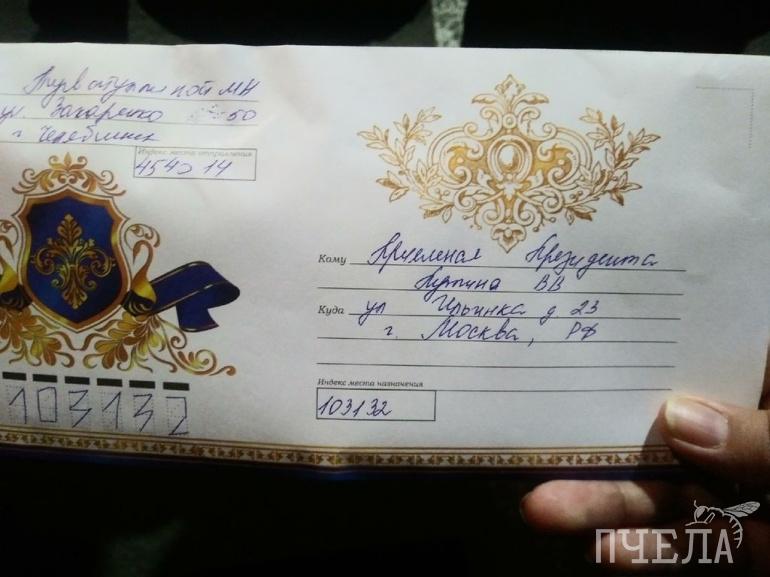 ул. Захаренко 50
г Челябинск
Индекс места отправления
454014
Кому Приемная Президента
Путина ВВ
Куда ул Ильинка д 23
г. Москва, РФ
Индекс места назначения
103132
103132
ПЧЕЛА